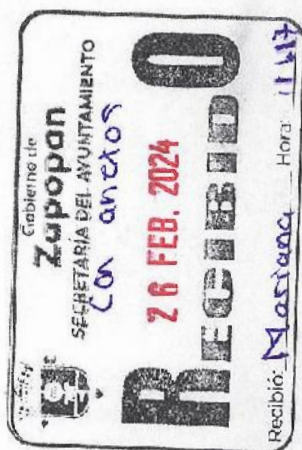 Gobierno de
Zapopan
SECRETARÍA DEL AYUNTAMIENTO
Con anexos
26 FEB. 2024
RECIBIDO
Recibió: Mariana Hora: 11:17